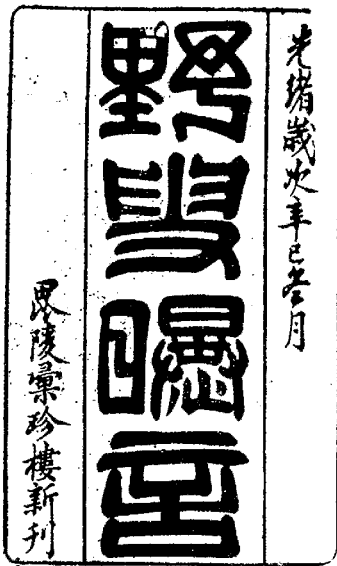 光緒歲次辛巳冬月
野叟曝言
毘陵彙珍樓新刊